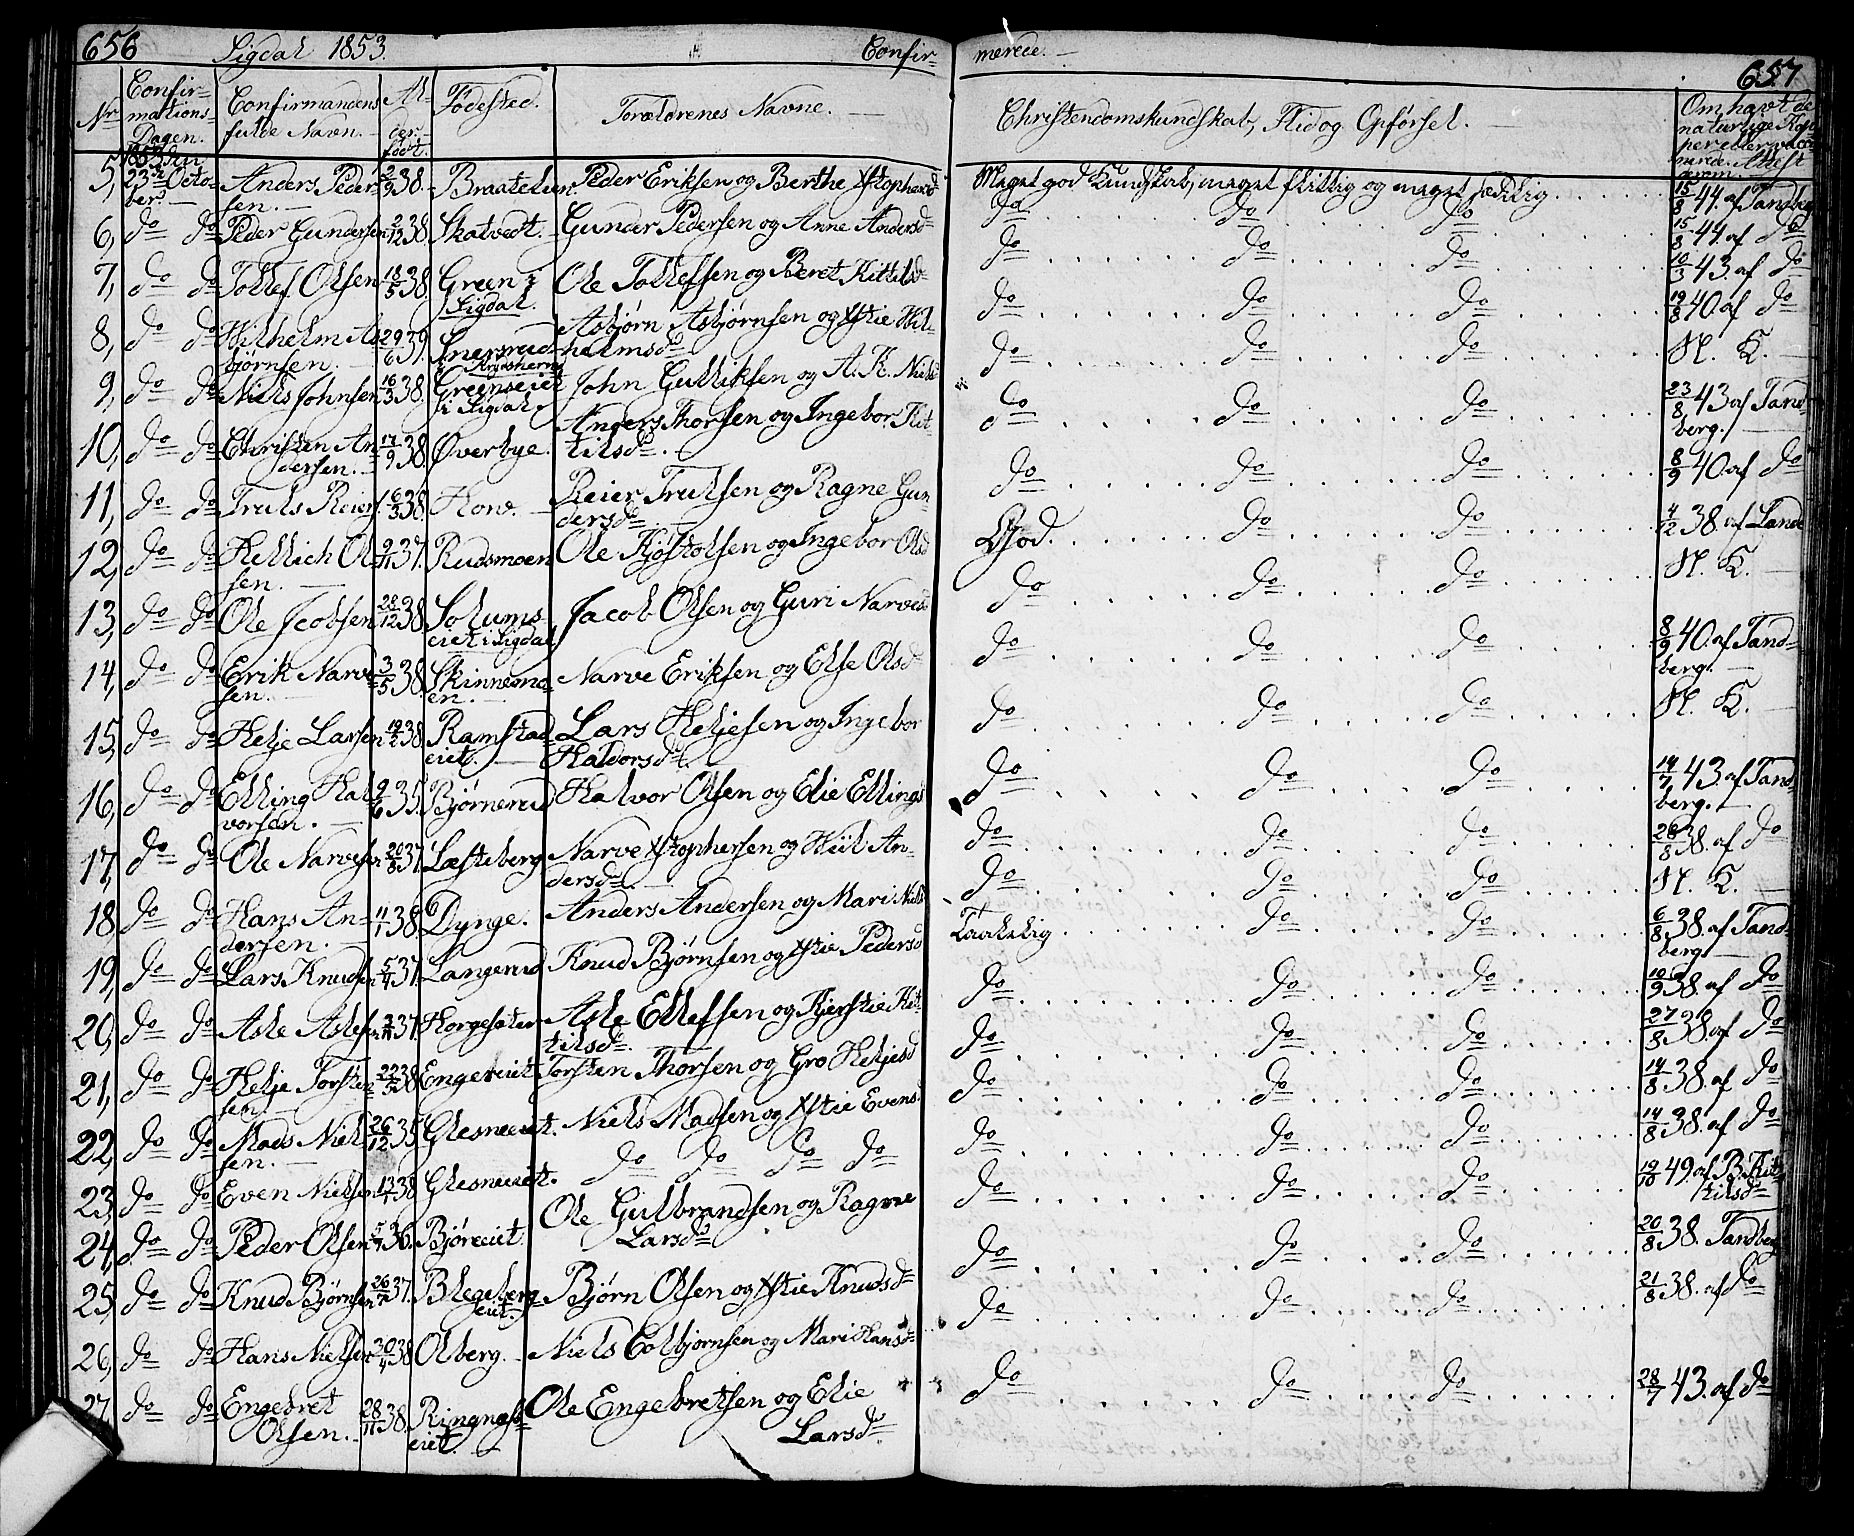 656 Sigdal 1853. Confir-
merede. 657
Nr. Confir-
mations-
Dagen. Confirmandens
fulde Navn. Al-
der.
født. Fødested. Forældrenes Navne. Christendomskundskab, Flid og Opførsel. Om havt de
naturlige Kop-
per eller vacci-
nerede. Attest
5, 23de Octo-
ber. Anders Peder-
sen. 2/9 38. Braatelien Peder Eriksen og Berthe Xstophersd Meget god Kundskab, meget flittig og meget sædelig. 15/8 44. af Tandberg
6, do do Peder Gundersen 2/12 38. Skatvedt. Gunder Pedersen og Anne Andersd do do do 15/8 44. af do
7, do do Tollef Olsen 18/5 38. Green i
Sigdal. Ole Tollefsen og Beret Kittilsd do do do 10/3 43. af do
8, do do Wilhelm As-
bjørnsen. 29/6 39. Snersrud
Asbjørn Asbjørnsen og Xstie Wil-
helmsd do do do 19/8 40. af do
9, do do Niels Johnsen 16/3 38. Greenseiet
i Sigdal John Gulliksen og A. K. Nielsd do do do N. K.
10, do do Christen An-
dersen. 17/9 38. Øverbye. Anders Thorsen og Ingebor Kit-
tilsd. do do do 23/8 43 af Tand-
berg.
11, do do Truls Reiers 6/3 38. Hov. Reier Trulsen og Ragne Gun-
dersd. do do do 8/9 40. af do
12, do do Hellich Ol-
sen. 9/11 37. Rudsmoen Ole Kjøstolsen og Ingebor Olsd God. do do 4/12 38. af Lande
13, do do Ole Jcobsen 28/12 38. Solums-
eiet i Sigdal Jacob Olsen og Guri Narvesd do do do N. K.
14, do do Erik Narve-
sen. 3/5 38. Skinnesmo-
en. Narve Eriksen og Else Olsd do do do 8/9 40. af Tand-
berg.
15, do do Helje Larsen 19/2 38. Ramstad-
eiet. Lars Heljesen og Ingebor
Haldorsd. do do do N. K.
16, do do Elling Hal-
vorsen. 9/6 35. Bjørnerud Halvor Olsen og Elie Ellingsd do do do 14/7 43. af Tand-
berg.
17, do do Ole Narvesen 20/8 37. Læsteberg Narve Xstophersen og Kiil An-
dersd. do do do 28/8 38. af do
18, do do Hans An-
dersen. 11/1 38. Dynge. Anders Andersen og Mari Nielsd do do do N. K.
19, do do Lars Knudsen 5/4 37. Langerud Knud Bjørnsen og Xstie Pedersd Taalelig do do 6/8 38. af Tand-
berg.
20, do do Asle Aslesen 37. Horgesæter Asle Ellefsen og Kjerstie Kit-
tilsd. do do do 19/9 38. af do
21, do do Helje Torsten-
sen. 22/5 38. Engereiet Torsten Thorsen og Gro Heljesd do do do 27/8 38. af do
22, do do Mads Niel-
sen. 26/12 35. Glesneeiet. Niels Madsen og Xstie Evensd do do do 14/8 38. af do
23, do do Even Nielsen 13/1 38. Glesneeiet. do do do do do do do 14/8 38. af do
24, do do Peder Olsen 5/7 36. Bjøreeiet. Ole Gulbrandsen og Ragne
Larsd do do do 19/10 49. af B. Kit-
tilsd
25, do do Knud Bjørnsen 26/11 37. Blegeberg-
eiet. Bjørn Olsen og Xstie Knudsd do do do 20/8 38. Tandberg
26, do do Hans Nielsen 30/4 38. Olberg. Niels Colbjørnsen og Mari Hansd do do do 21/8 38. af do
27, do do Engebret
Olsen. 28/11 38. Ringnæs-
eiet. Ole Engebretsen og Elie
Larsd do do do 28/7 43. af do